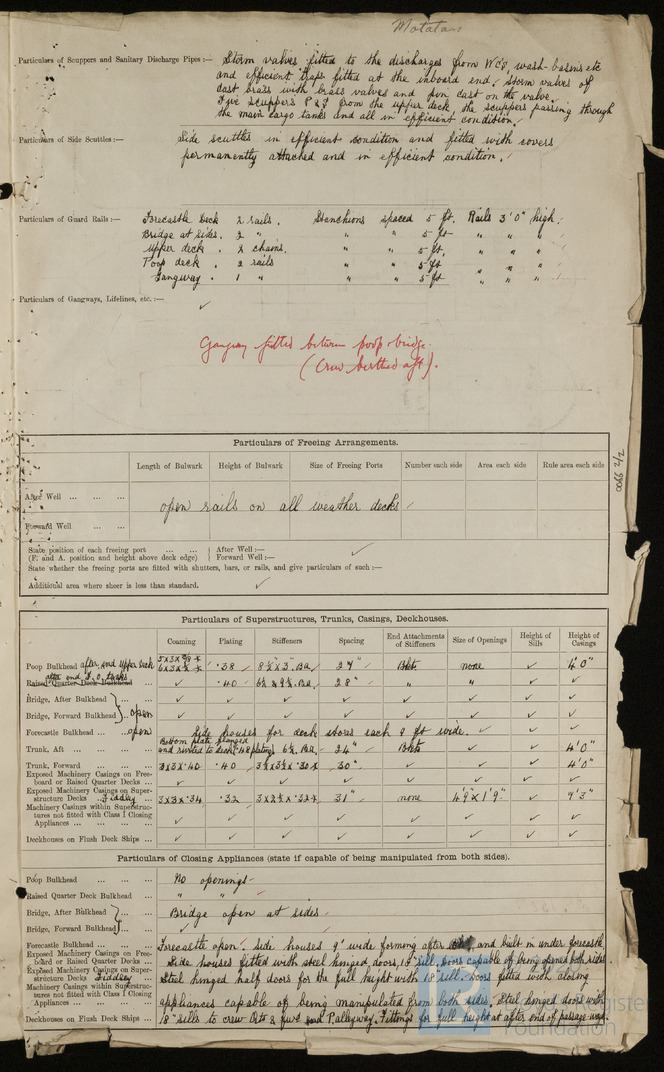 Motatan
Particulars of Scuppers and Sanitary Discharge Pipes :— Storm valves fitted to the discharges from W.C's, wash-basins etc
and efficient traps fitted at the inboard end. Storm valves of
cast brass with brass valves and pin cast on the valve.
Five scuppers P & S from the upper deck, the scuppers passing through
the main cargo tanks and all in efficient condition.
Particulars of Side Scuttles :— Side scuttles in efficient condition and fitted with covers
permanently attached and in efficient condition.
Particulars of Guard Rails :— Forecastle Deck 2 rails. Stanchions spaced 5 ft. Rails 3' 0" high.
Bridge at sides. 2 " " " 5 ft " " "
Upper deck . 2 chains. " " 5 ft. " " "
Poop deck . 2 rails " " 5 ft " " "
Gangway . 1 " " " 5 ft " " "
Particulars of Gangways, Lifelines, etc. :— ✓
Gangway fitted between poop & bridge.
(Crew berthed aft).
0066 2/2
Particulars of Freeing Arrangements.
Length of Bulwark Height of Bulwark Size of Freeing Ports Number each side Area each side Rule area each side
After Well ... ... ...
open rails on all weather decks
Forward Well ... ...
State position of each freeing port ... ... ... After Well :— ✓
(F. and A. position and height above deck edge) Forward Well :—
State whether the freeing ports are fitted with shutters, bars, or rails, and give particulars of such :—
Additional area where sheer is less than standard. ✓
Particulars of Superstructures, Trunks, Casings, Deckhouses.
Coaming Plating Stiffeners Spacing End Attachments of Stiffeners Size of Openings Height of Sills Height of Casings
Poop Bulkhead after end upper deck 6 x 3 x .38 27" Bkts none ✓ 4' 0"
after end F.O. tanks
Raised Quarter Deck Bulkhead ... ✓ .40 28" " " ✓ ✓
Bridge, After Bulkhead ✓ ✓ ✓ ✓ ✓ ✓ ✓ ✓
Bridge, Forward Bulkhead open ✓ ✓ ✓ ✓ ✓ ✓ ✓ ✓
Forecastle Bulkhead ... open Side houses for deck stores each 9 ft wide. ✓ ✓ ✓
Bottom plate flanged
Trunk, Aft ... ... ... and riveted to deck .48 plating 6½ B.A. 24" Bkts ✓ ✓ 4' 0"
Trunk, Forward ... ... ... 3x3x.40 .40 3½x3½x.30 30" ✓ ✓ ✓ 4' 0"
Exposed Machinery Casings on Freeboard or Raised Quarter Decks ... ✓ ✓ ✓ ✓ ✓ ✓ ✓ ✓
Exposed Machinery Casings on Superstructure Decks Fiddley ... 3x3x.34 .32 3x2½x.32 31" none 4' 9" x 1' 9" ✓ 9' 3"
Machinery Casings within Superstructures not fitted with Class I Closing
Appliances ... ... ... ... ✓ ✓ ✓ ✓ ✓ ✓ ✓ ✓
Deckhouses on Flush Deck Ships ... ✓ ✓ ✓ ✓ ✓ ✓ ✓ ✓
Particulars of Closing Appliances (state if capable of being manipulated from both sides).
Poop Bulkhead ... ... ... No openings
Raised Quarter Deck Bulkhead ... " "
Bridge, After Bulkhead ... Bridge open at sides
Bridge, Forward Bulkhead ... ✓
Forecastle Bulkhead ... ... Forecastle open. Side houses 9' wide forming after and built in under forecastle.
Exposed Machinery Casings on Freeboard or Raised Quarter Decks Side houses fitted with steel hinged doors, 18" sill, doors capable of being opened both sides
Exposed Machinery Casings on Superstructure Decks Fiddley Steel hinged half doors for the full height with 18" sill. Doors fitted with closing
Machinery Casings within Superstructures not fitted with Class I Closing
Appliances ... appliances capable of being manipulated from both sides. Steel hinged doors with
Deckhouses on Flush Deck Ships ... 18" sills to crew Qrts & fwd end P. alleyway. Fittings for full height at after end of passage way.
Register
Foundation